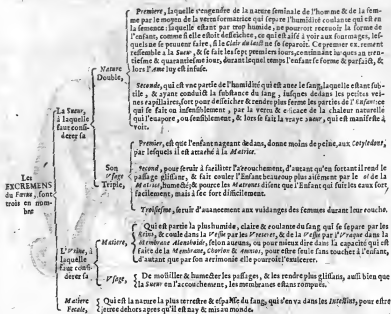 Premiere, laquelle s'engendre de la nature seminale de l'homme & de la fem-
me par le moyen de la vertu formatrice qui separe l'humidité coulante qui est en
la semence: laquelle estant par trop humide, ne pourroit recevoir la forme de
l'enfant, comme si elle estoit desseichee, ce qui est aisé à voir aux fourmages, les-
quels ne se peuvent faire, si le Clair du laict ne se separoit. Ce premier excrement
ressemble à la Sueur, & se fait les sept premiers jours, continuant jusques au tren-
tiesme & quarantiesme jour, durant lequel temps l'enfant se forme & parfaict, &
lors l'Ame luy est infuse.
Nature
Double,
Seconde, qui est vne partie de l'humidité qui est avec le sang, laquelle estant sub-
tile, & ayant conduict la substance du sang, jusques dedans les petites vei-
nes capillaires, sort pour desseicher & rendre plus ferme les parties de l'Enfant: ce
qui se fait insensiblement, par la vertu & efficace de la chaleur naturelle
qui l'evapore, ou sensiblement, & lors se fait la vraye sueur, qui est manifeste à
voir.
La Sueur,
à laquelle
faut consi-
derer sa
Premier, est que l'enfant nageant dedans, donne moins de peine, aux Cotyledons,
par lesquels il est attaché à la Matrice.
Son
Usage
Triple,
second, pour servir à faciliter l'accouchement, d'autant qu'en sortant il rend le
passage glissant, & fait couler l'Enfant beaucoup plus aisément par le col de la
Matrice, humecté; & pource les Matrones disent que l'Enfant qui suit les eaux sort,
facilement, mais à sec sort difficilement.
Troisiesme, servir d'avancement aux vuidanges des femmes durant leur couche.
Les
EXCREMENS
du Fœtus, sont
trois en nom-
bre
L'Urine, à
laquelle
faut consi-
derer sa
Matiere,
Qui est partie la plus humide, claire & coulante du sang qui se separe par les
Reins, & coule dans la Vessie par les Vreteres, & de la Vessie par l'Uraque dans la
Membrane Allantoide, selon aucuns, ou pour mieux dire dans la capacité qui est
faite de la Membrane, chorion & amnios, pour estre seule sans toucher à l'enfant,
d'autant que par son acrimonie elle pourroit l'exulcerer.
Usage,
De mouiller & humecter les passages, & les rendre plus glissans, aussi bien que
la Sueur en l'accouchement, les membranes estans rompus.
Matiere
Fecale,
Qui est la nature la plus terrestre & espaisse du sang, qui s'en va dans les Intestins, pour estre
jettee dehors apres qu'il est nay & mis au monde.